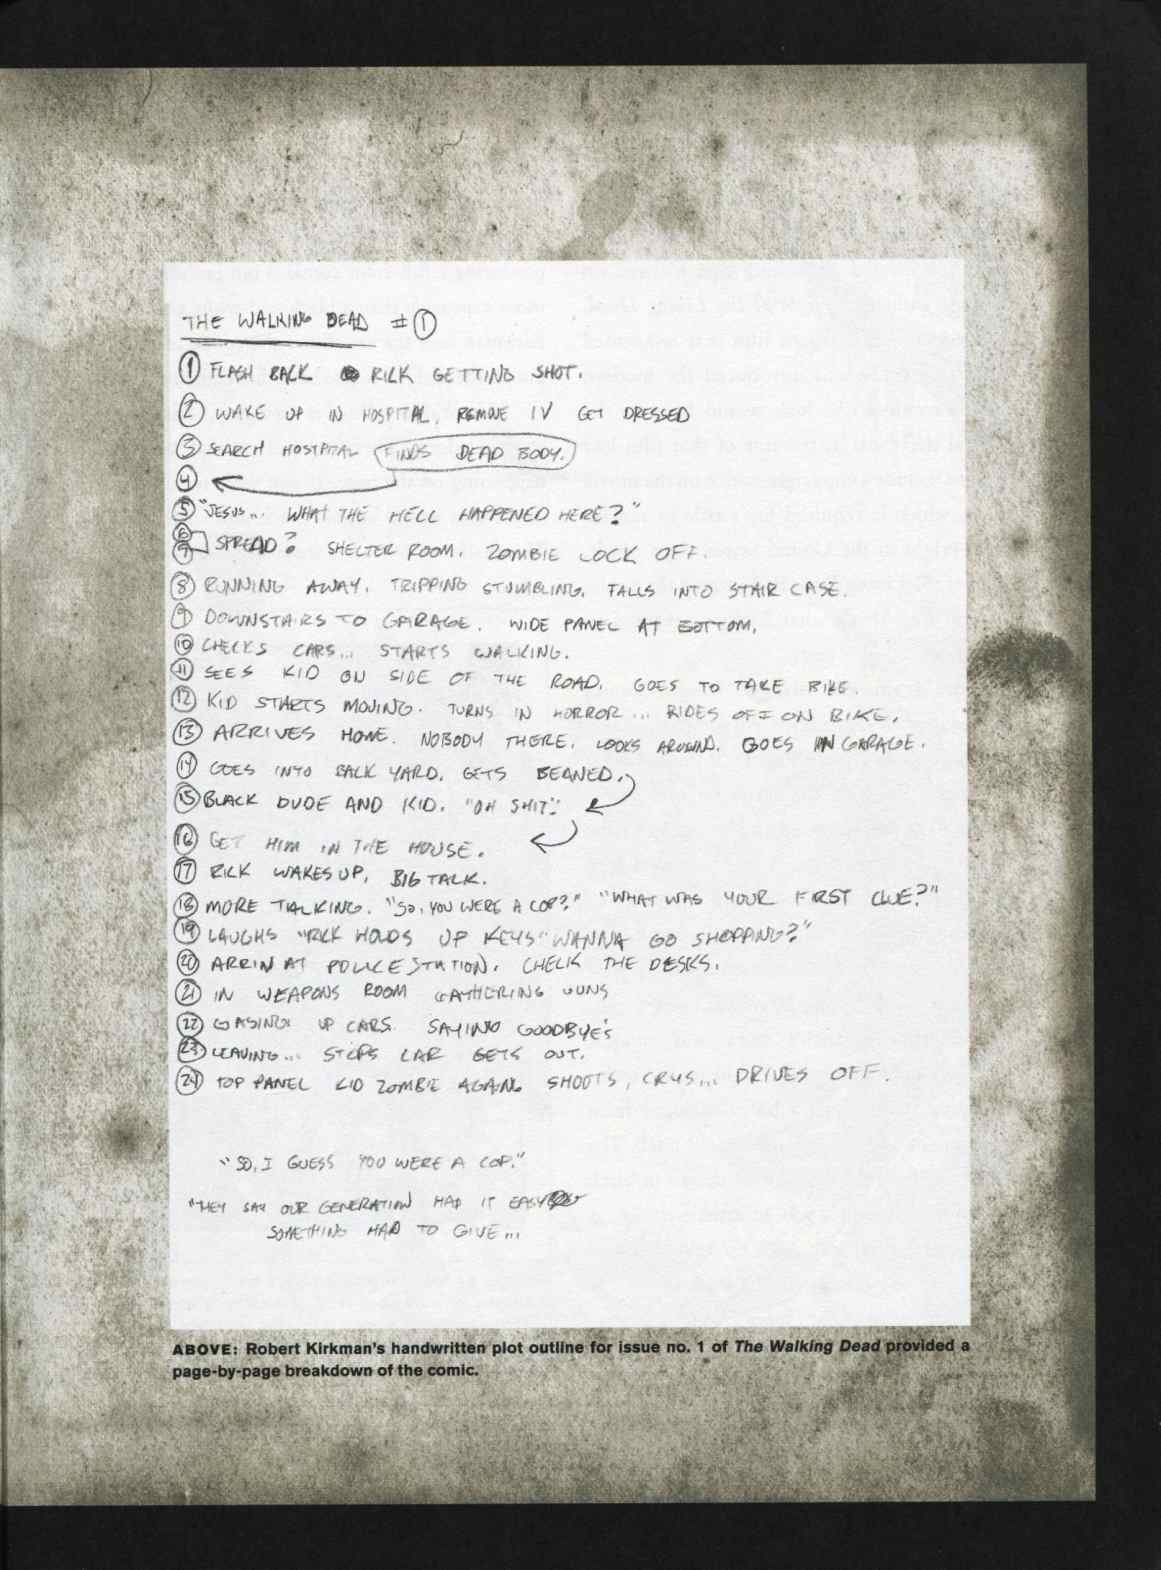 THE WALKING DEAD #1
1 FLASH BACK RICK GETTING SHOT.
2 WAKE UP IN HOSPITAL, REMOVE IV GET DRESSED
3 SEARCH HOSTPITAL FINDS DEAD BODY.
4
5 "JESUS... WHAT THE HELL HAPPENED HERE?"
6
7 SPREAD? SHELTER ROOM. ZOMBIE LOCK OFF.
8 RUNNING AWAY. TRIPPING STUMBLING. FALLS INTO STAIR CASE.
9 DOWNSTAIRS TO GARAGE. WIDE PANEL AT BOTTOM.
10 CHECKS CARS... STARTS WALKING.
11 SEES KID ON SIDE OF THE ROAD. GOES TO TAKE BIKE.
12 KID STARTS MOVING. TURNS IN HORROR... RIDES OFF ON BIKE.
13 ARRIVES HOME. NOBODY THERE. LOOKS AROUND. GOES IN GARAGE.
14 GOES INTO BACK YARD. GETS BEANED.
15 BLACK DUDE AND KID. "OH SHIT."
16 GET HIM IN THE HOUSE.
17 RICK WAKES UP, BIG TALK.
18 MORE TALKING. "SO, YOU WERE A COP?" "WHAT WAS YOUR FIRST CLUE?"
19 LAUGHS "RICK HOLDS UP KEYS "WANNA GO SHOPPING?"
20 ARRIN AT POLICE STATION. CHECK THE DESKS.
21 IN WEAPONS ROOM GATHERING GUNS
22 GASING UP CARS. SAYING GOODBYE'S
23 LEAVING... STOPS CAR GETS OUT.
24 TOP PANEL KID ZOMBIE AGAING SHOOTS, CRYS... DRIVES OFF.
"SO, I GUESS YOU WERE A COP."
"THEY SAY OUR GENERATION HAD IT EASY
SOMETHING HAD TO GIVE...
ABOVE: Robert Kirkman's handwritten plot outline for issue no. 1 of The Walking Dead provided a
page-by-page breakdown of the comic.